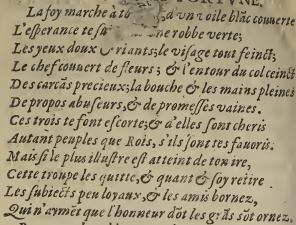 FORTVNE.
La foy marche a to d'vn voile blãc couuerte
L'esperance te sui d'vne robbe verte;
Les yeux doux & riants; le visage tout feinct;
Le chef couuert de fleurs; & l'entour du col ceinct
Des carcãs precieux; la bouche & les mains pleines
De propos abuseurs, & de promesses vaines.
Ces trois te font escorte; & d'elles sont cheris
Autant peuples que Rois, s'ils sont tes fauoris.
Mais si le plus illustre est atteint de ton ire,
Cette troupe les quitte, & quant & soy retire
Les subiects peu loyaux, & les amis bornez,
Qui n'aymẽt que l'honneur dõt les grãs sõt ornez.